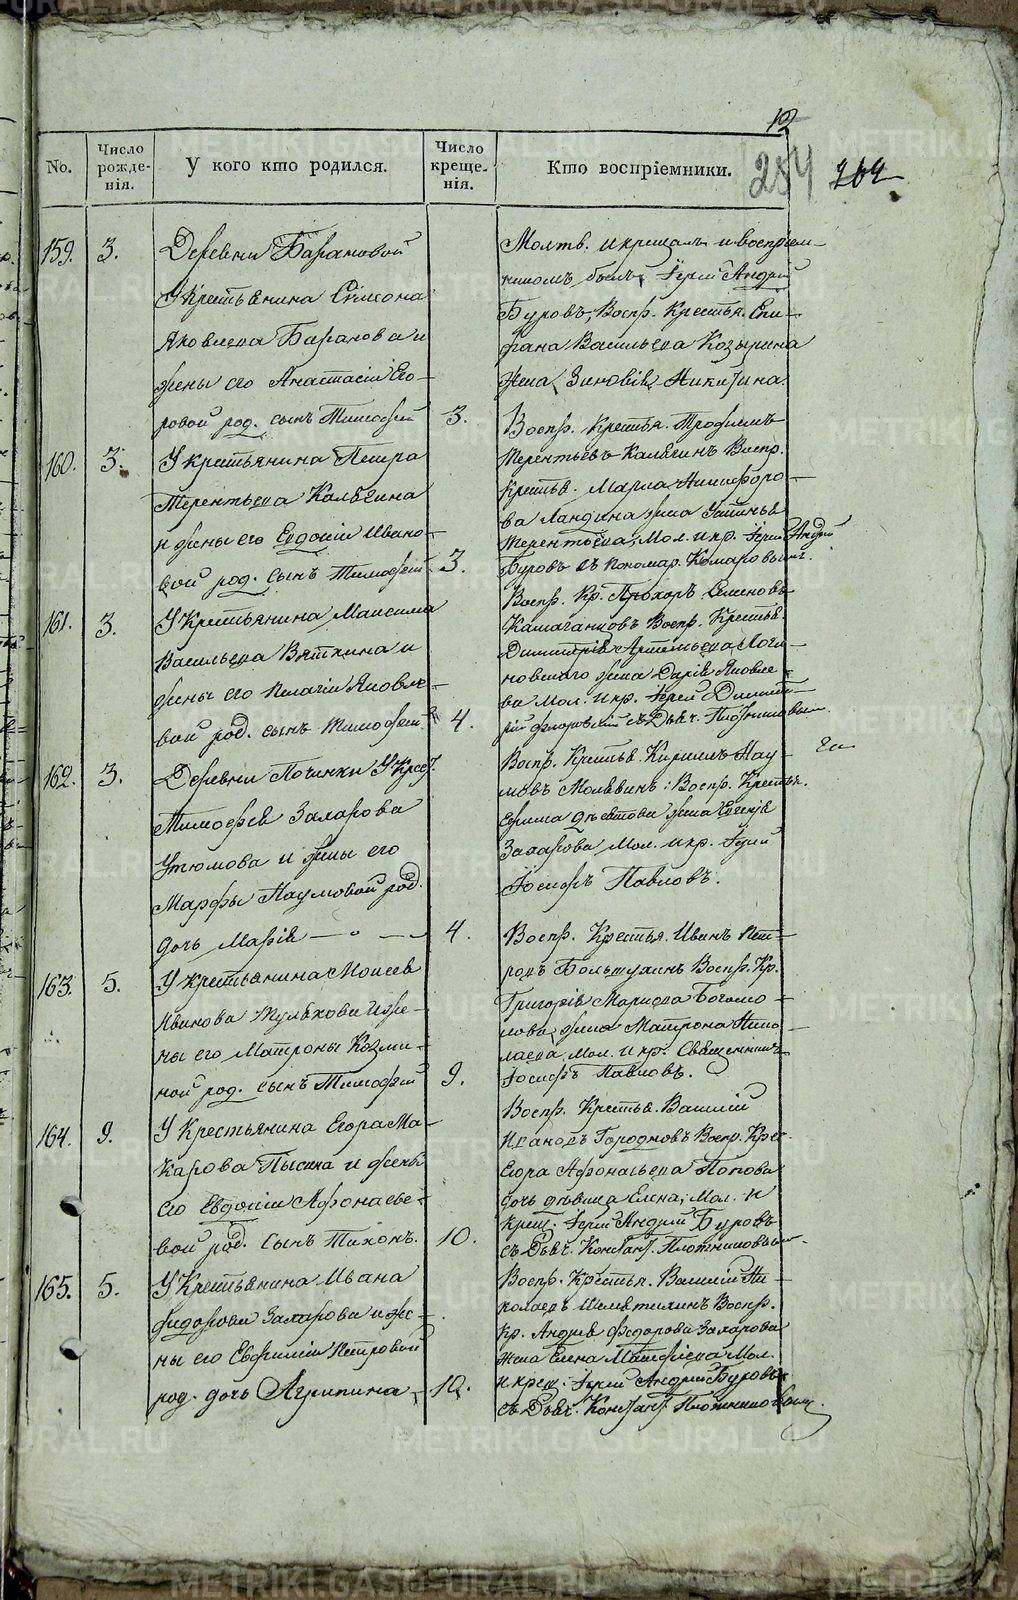 12
284 262
No.
Число рожде-нія.
У кого кто родился.
Число креще-нія.
Кто воспріемники.
159. 3.
Деревни Барановой
У Крестьянина Симона
Яковлева Баранова и
жены его Анастасіи Его-
ровой род. сынъ Тимофей 3.
Молтв. и крещалъ и воспріем-
никомъ былъ Іерей Андрей
Буровъ, Воспр. Крестья. Епи-
фана Васильева Козырина
жена Зиновія Никитина.
160. 3.
У крестьянина Петра
Терентьева
и жены его Евдокіи Ивано-
вой род. сынъ Тимофей 3.
Воспр. Крестья. Трофимъ
Терентьевъ Воспр.
Крестья. Марка Никифоро-
ва жена Устинья
Терентьева, Мол. и кр. Іерей Андрей
Буровъ съ Пономар. Комаровымъ.
161. 3.
У Крестьянина Максима
Васильева Вяткина и
жены его Пелагіи Яковле-
вой род. сынъ Тимофей 4.
Воспр. Кр. Прохоръ Семеновъ
Воспр. Крестья.
Димитрія Артемьева
жена Дарія Яковле-
ва Мол. и кр. Іерей Димит-
рій Флоровскій съ Дьяч. Плотниковым.
162. 3.
Деревни Починки У Крест.
Тимофея Захарова
Утюмова и жены его
Марфы Наумовой род.
дочь Марія 4.
Воспр. Крестья. Кирилъ Нау-
мовъ Молявинъ: Воспр. Крестья.
Ефима жена Евгенія
Захарова, Мол. и кр. Іерей
Іосифъ Павловъ.
163. 5.
У Крестьянина Моисея
Иванова и же-
ны его Матроны Козми-
ной род. сынъ Тимофей 9.
Воспр. Крестья. Иванъ Пет-
ровъ Воспр. Кр.
Григорія Маркова Богомо-
лова жена Матрона Нико-
лаева, Мол. и кр. Священникъ
Іосифъ Павловъ.
164. 9.
У Крестьянина Егора Ма-
карова Пысина и жены
его Евдокіи Афонасье-
вой род. сынъ Тихонъ. 10.
Воспр. Крестья. Василій
Ивановъ Воспр. Крес.
Егора Афонасьева Попова
дочь дѣвица Елена, Мол. и
крещ. Іерей Андрей Буровъ
съ Дьяч. Констант. Плотниковым.
165. 5.
У Крестьянина Ивана
Федорова Захарова и же-
ны его Евфиміи Петровой
род. дочь Агрипина 10.
Воспр. Крестьян. Василій Ни-
колаевъ Воспр.
Кр. Андрея Федорова Захарова
жена Елена Матфіева Мол.
и крещ. Іерей Андрей Буровъ
съ Дьяч. Констант. Плотниковым.
METRIKI.GASU-URAL.RU